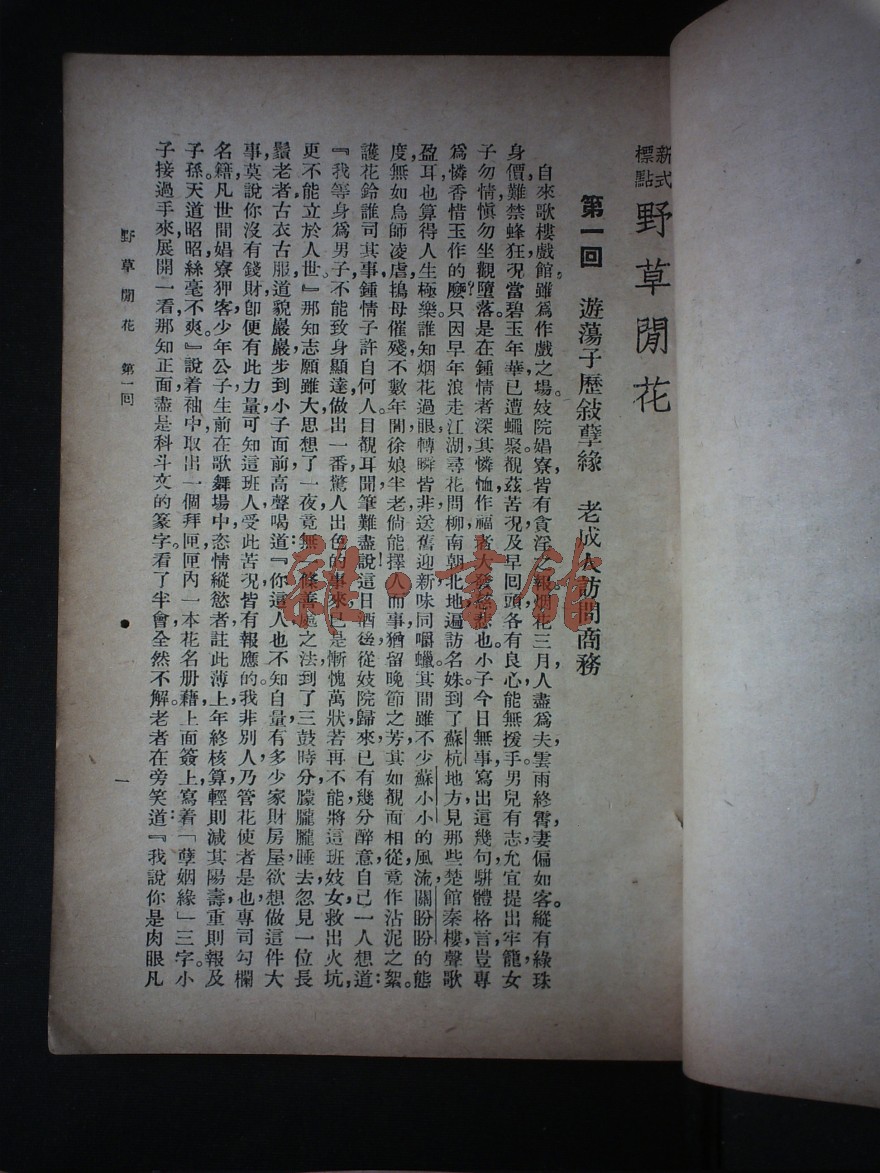 新式標點 野草閒花
第一回 遊蕩子歷敍孽緣 老成人訪問商務
自來歌樓戲館，雖爲作戲之場。妓院娼寮，皆有貪淫之報。烟花三月，人盡爲夫，雲雨終霄，妻偏如客。縱有綠珠
身價，難禁蜂狂，况當碧玉年華，已遭蠅聚。觀茲苦况，及早回頭，各有良心，能無援手。男兒有志，允宜提出牢籠，女
子勿情，愼勿坐觀墮落。是在鍾情者深其憐恤，作福者大發慈悲也。小子今日無事，寫出這幾句駢體格言，豈專
爲憐香惜玉作的麼？只因早年浪走江湖，尋花問柳，南朝北地，遍訪名姝。到了蘇杭地方，見那些楚館秦樓，聲歌
盈耳，也算得人生極樂。誰知烟花過眼，轉瞬皆非，送舊迎新，味同嚼蠟。其間雖不少蘇小小的風流，關盼盼的態
度，無如烏師凌虐，搗母催殘，不數年間，徐娘半老，倘能擇人而事，猶留晚節之芳，其如覩面相從，竟作沾泥之絮。
護花鈴誰司其事，鍾情子許自何人。目覩耳聞，筆難盡說！這日酒後，從妓院歸來，已有幾分醉意，自己一人想道：
『我等身爲男子，不能致身顯達，做出一番驚人出色的事來，已是慚愧萬狀，若再不能將這班妓女，救出火坑，
更不能立於人世。』那知志願雖大，思想了一夜，竟無一條善處之法。到了三鼓時分，朦朧睡去，忽見一位長
鬚老者，古衣古服，道貌巖巖，步到小子面前，高聲喝道：『你這人也不知自量，有多少家財房屋，欲想做這件大
事，莫說你沒有錢財，卽便有此力量，可知這班人，受此苦况，皆有報應的。我非別人，乃管花使者是也，專司勾欄
名籍，凡世間娼寮狎客，少年公子，生前在歌舞場中，恣情縱慾者，註此薄上，年終核算，輕則減其陽壽，重則報及
子孫。天道昭昭，絲毫不爽。』說着，袖中取出一個拜匣，匣內一本花名册藉，上面簽上，寫着：「孽姻緣」三字。小
子接過手來，展開一看，那知正面，盡是科斗文的篆字。看了半會，全然不解。老者在旁笑道：『我說你是肉眼凡
野草閒花 第一回 一